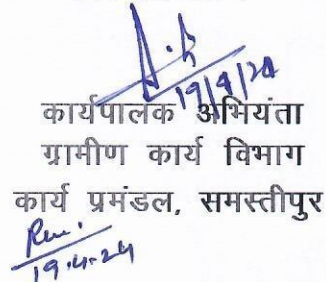 19/4/24
कार्यपालक अभियंता
ग्रामीण कार्य विभाग
कार्य प्रमंडल, समस्तीपुर
19.4.24